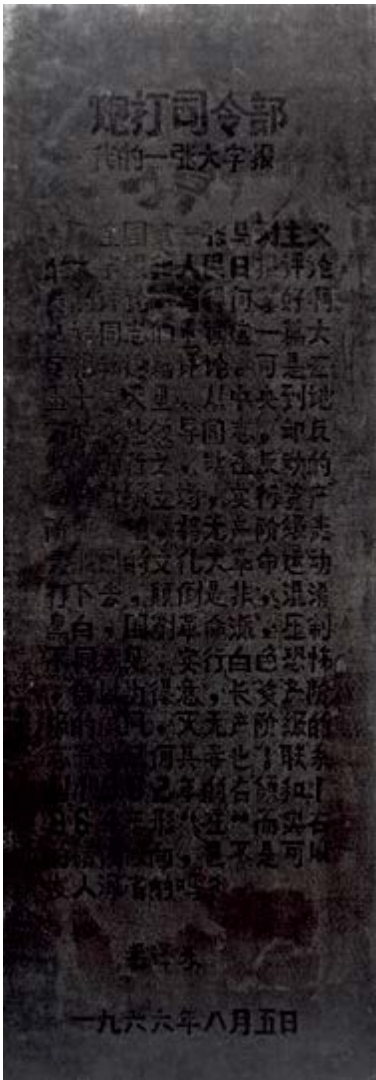 炮打司令部
我的一张大字报
全国第一张马列主义
的大字报和人民日报评论
员的评论，写得何等好啊
请同志们重读这一篇大
字报和这篇评论。可是在
五十多天里，从中央到地
方的某些领导同志，却反
行之，站在反动的
立场，实行资产
阶，将无产阶级轰
的文化大革命运动
打下去，颠倒是非，混淆
黑白，围剿革命派，压制
不同意见，实行白色恐怖
自以为得意，长资产阶
级的威风，灭无产阶级的
志气，又何其毒也！联系
年的右倾和1
964年形“左”而实右
的错误倾向，岂不是可以
发人深省的吗？
毛泽东
一九六六年八月五日